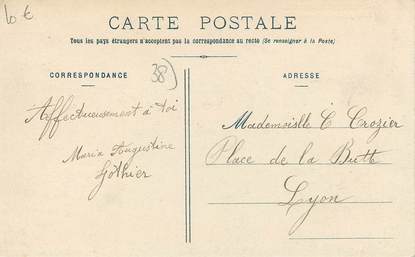 10 €
CARTE POSTALE
Tous les pays étrangers n'acceptent pas la correspondance au recto (Se renseigner à la Poste)
CORRESPONDANCE
38)
ADRESSE
Affectueusement à toi
Maria Augustine
Gothier
Mademoislle C Crozier
Place de la Butte
Lyon